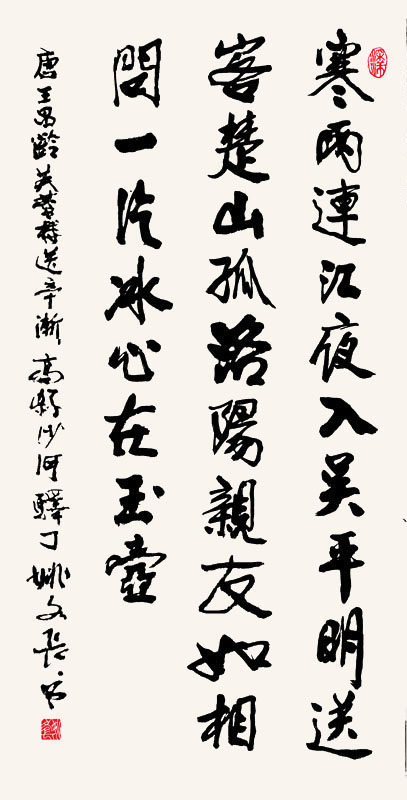 寒雨連江夜入吳平明送
客楚山孤洛陽親友如相
問一片冰心在玉壺
唐王昌齡芙蓉樓送辛漸高縣沙河驛丁姚文長书